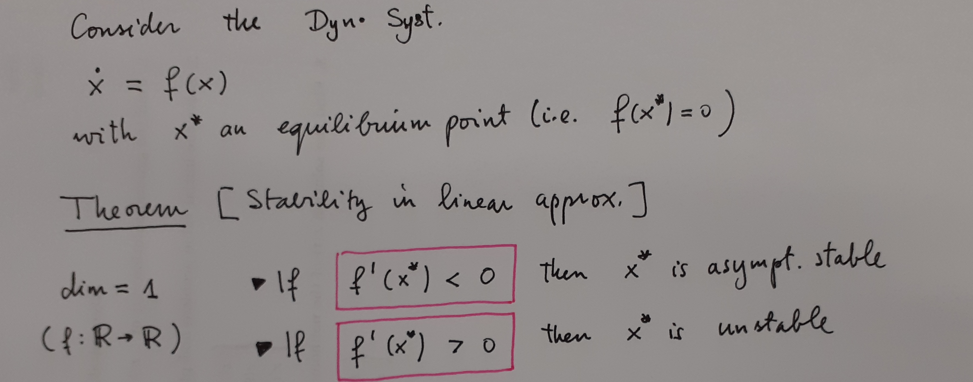 Consider the Dyn. Syst.
ẋ = f(x)
with x* an equilibrium point (i.e. f(x*)=0)
Theorem [Stability in linear approx.]
dim = 1 ▸ If f'(x*) < 0 then x* is asympt. stable
(f: ℝ→ℝ) ▸ If f'(x*) > 0 then x* is unstable